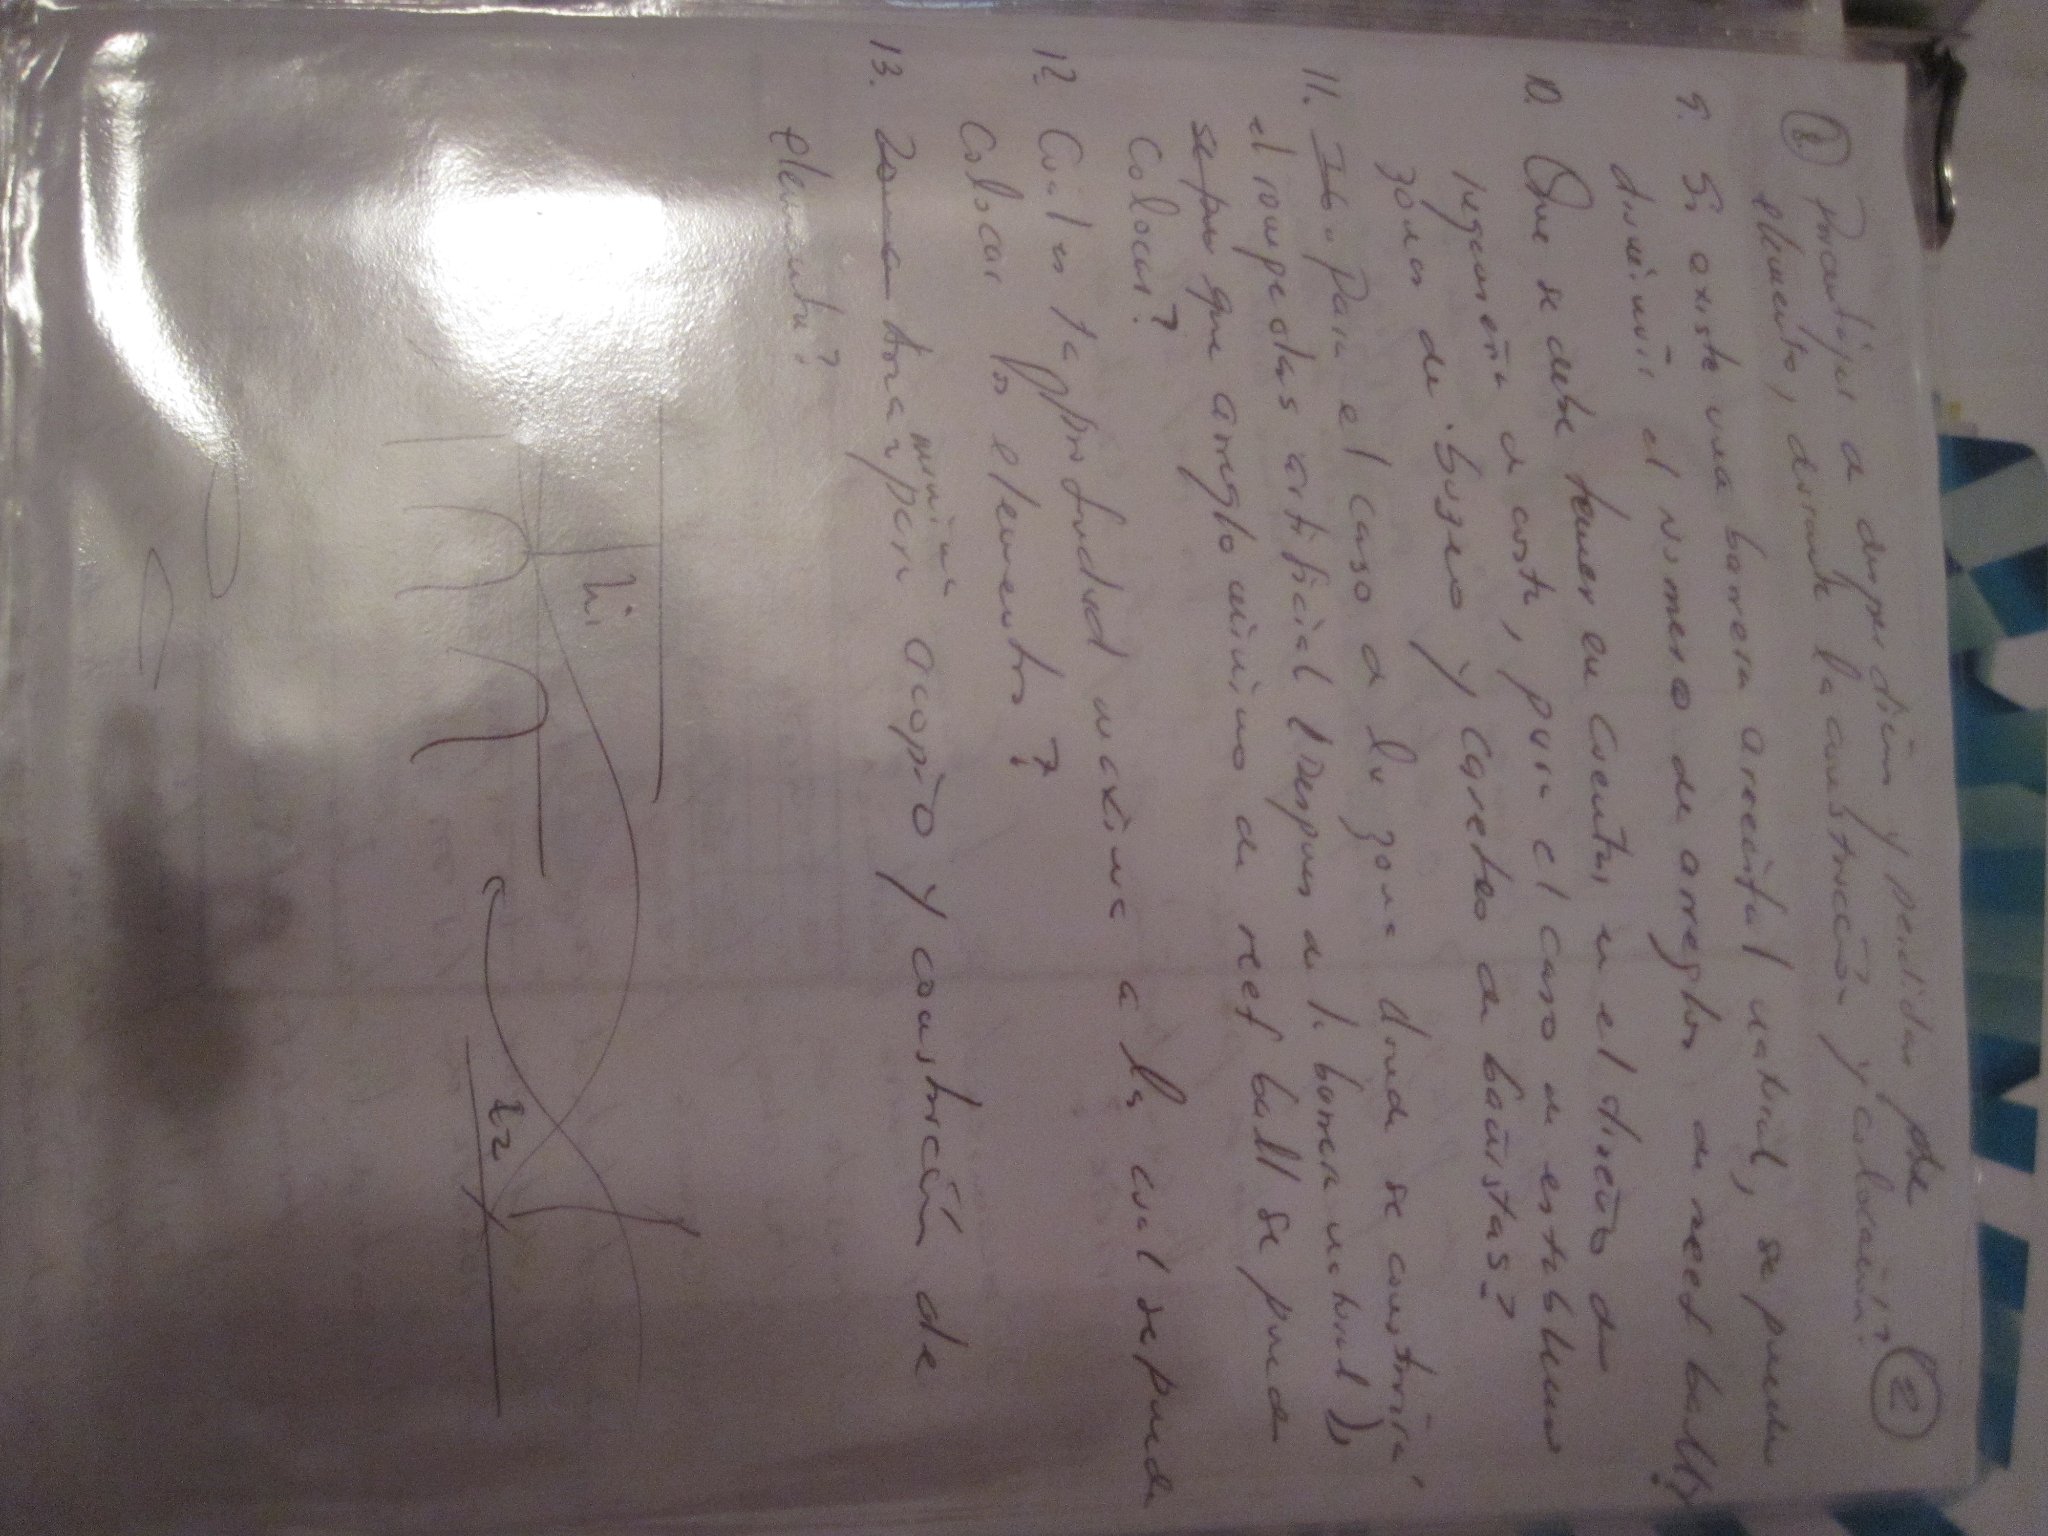 2
8. Porcentajes de desperdicios y perdidas de
elementos, durante la construcción y colocación?
9. Si existe una barrera arrecifal natural, se puede
disminuir el número de arreglos de reef balls,
10. Que se debe tener en cuenta, en el diseño de
regeneración de costa, para el caso de establecer
zonas de buseo y careteo de bañistas?
11. Para el caso de la zona donde se construirá,
el rompeolas artificial (Despues de la barrera natural),
que arreglo mínimo de reef ball se puede
colocar?
12. Cual es la profundidad maxima a la cual se puede
colocar los elementos?
13. Zona mínima para acopio y construcción de
elementos?
hi
h2